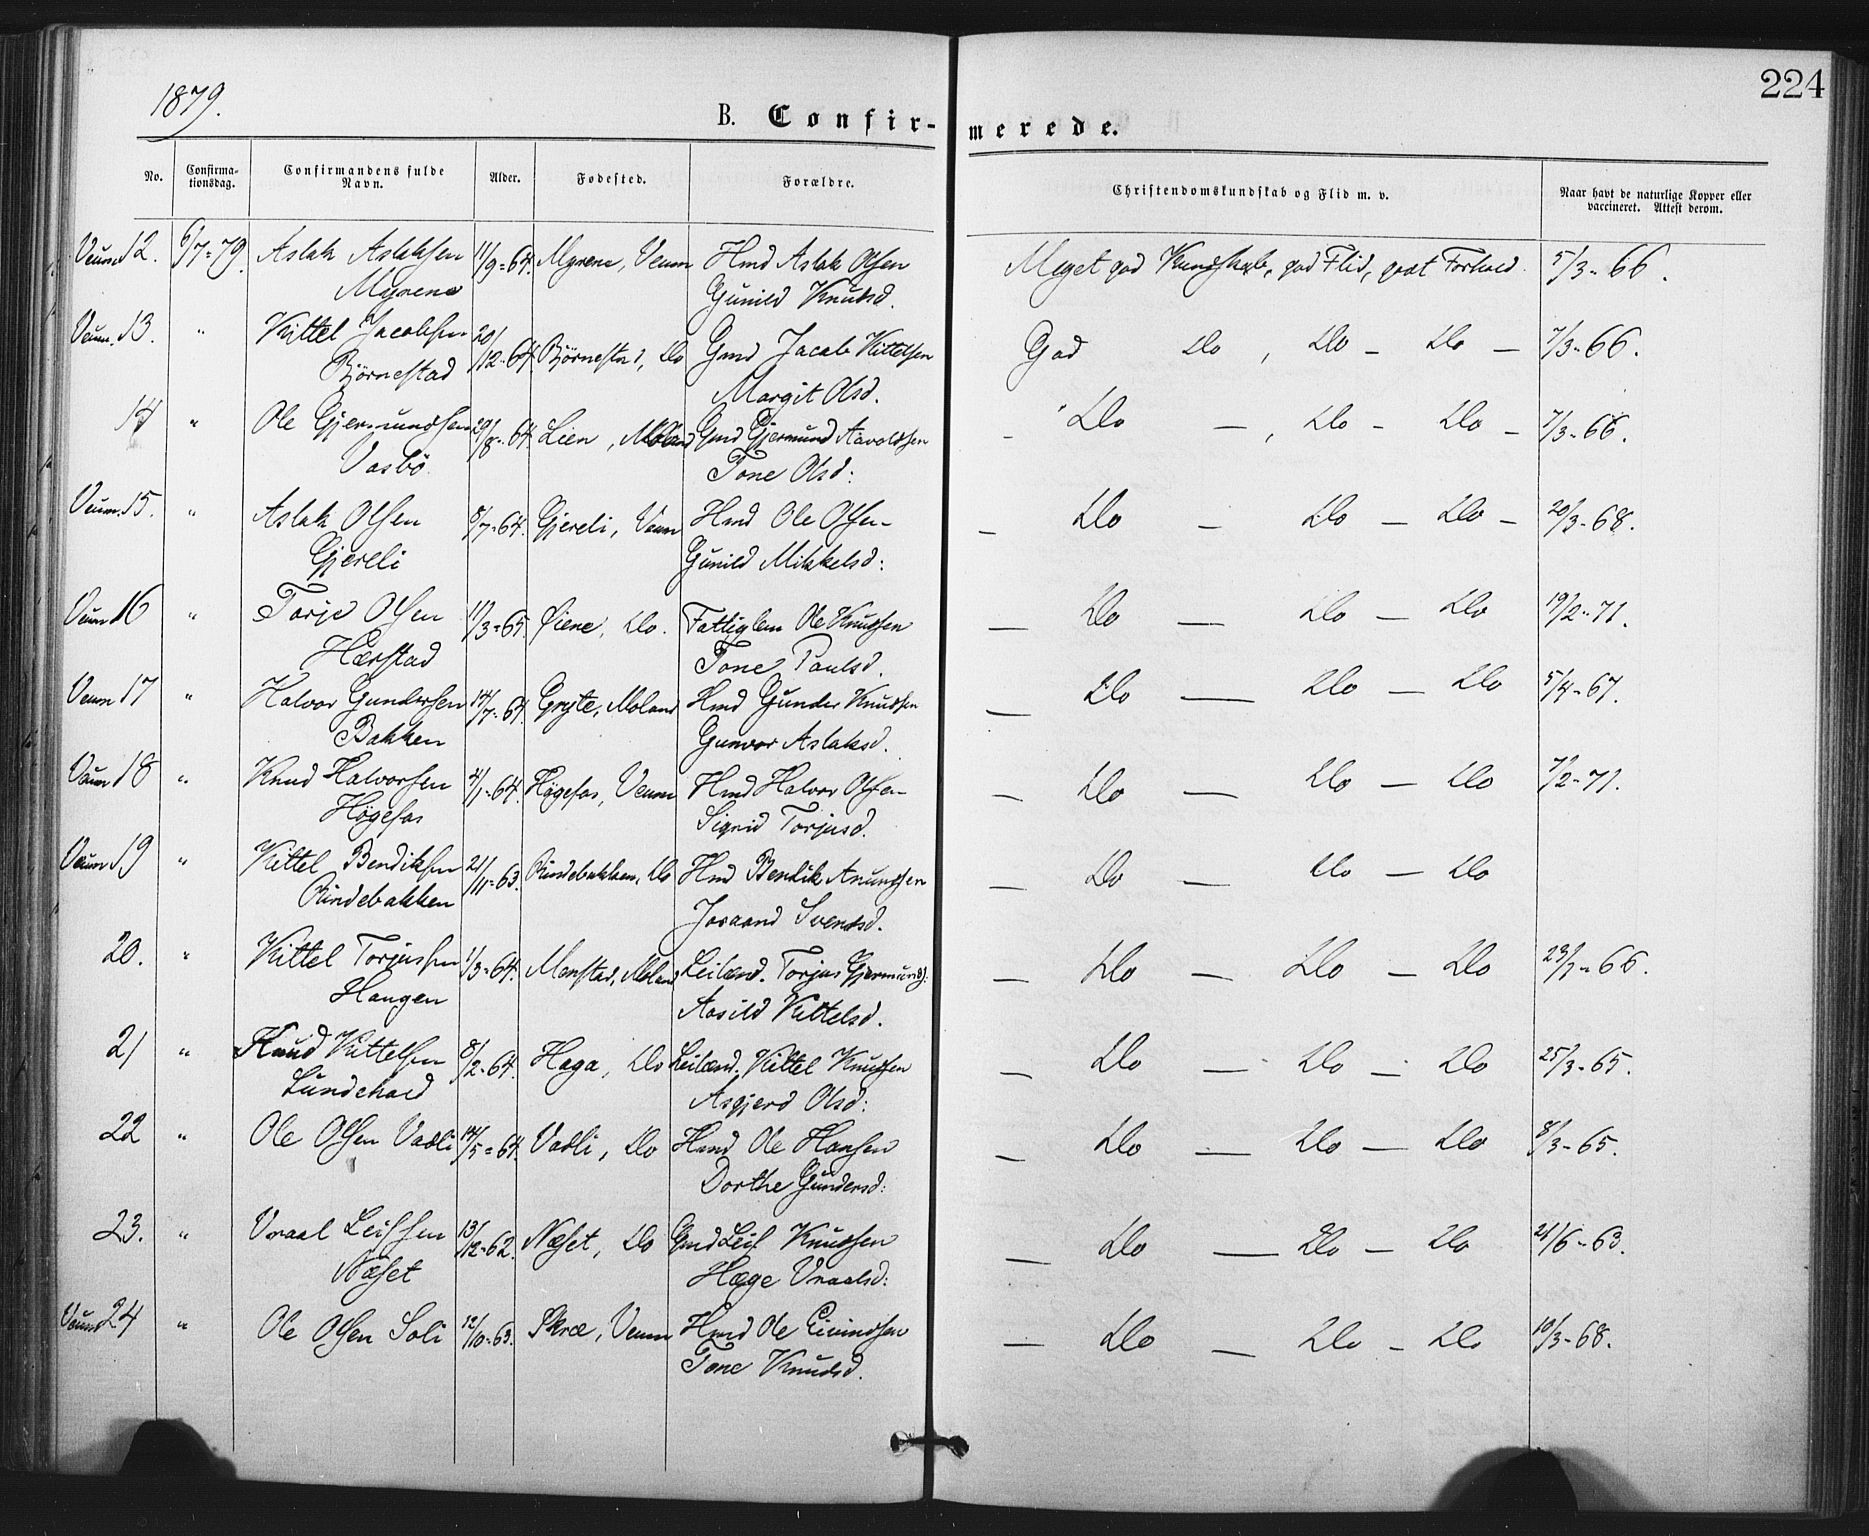 224
1879.
B. Confir- merede.
No. Confirma-tionsdag. Confirmandens fulde Navn. Alder. Fødested. Forældre. Christendomskundskab og Flid m. v. Naar havt de naturlige Kopper eller vaccineret. Attest derom.
Veum 12. 6/7-79. Aslak Aslaksen 11/9-64. Myrene, Veum Hmd Aslak Olsen Meget god Kundskab, god Flid, godt Forhold. 5/3-66.
Myrene Gunild Knutsd.
Veum 13. " Kittel Jacobsen 20/12-64. Bjørnestad, Do Gmd Jacob Kittelsen God Do, Do - Do - 7/3-66.
Bjørnestad Margit Olsd.
14 " Ole Gjermundsen 29/8-64. Lien, Moland Gmd Gjermund Aavoldsen - Do -, Do - Do - 7/3-66.
Vasbö Tone Olsd:
Veum 15. " Aslak Olsen 8/7-64. Gjereli, Veum Hmd Ole Olsen - - Do - Do - Do - 20/3-68.
Gjereli Gunild Mikkelsd:
Veum 16 " Torje Olsen 11/3-65. Øiene, Do. Fattiglem Ole Knudsen - Do - Do - Do 19/2-71.
Hærstad Tone Paulsd.
Veum 17 " Halvor Gundersen 14/7-64. Gryte, Moland Hmd Gunder Knudsen - Do - Do - Do 5/4-67.
Bakken Gunvor Aslaksd.
Veum 18 " Knud Halvorsen 4/1-64. Høgefos, Veum Hmd Halvor Olsen - - Do - Do - Do 7/2-71.
Høgefos Sigrid Torjusd.
Veum 19 " Kittel Bendiksen 21/11-63. Rindebakken, Do Hmd Bendik Anundsen - Do - Do - Do
Rindebakken Joraand Svendsd.
20. " Kittel Torjussen 1/3-64. Monstad, Moland Leilænd. Torjus Gjermunds: - Do - Do - Do 23/7-66.
Haugen Aasild Kittelsd.
21 " Knud Kittelsen 8/2-64. Haga, Do Leilænd. Kittel Knudsen - Do - Do - Do 25/3-65.
Lundehaed Asgjerd Olsd:
22 " Ole Olsen Vadli 14/5-64. Vadli, Do Hmd Ole Hansen - Do - Do - Do 8/3-65.
Dorthe Gundersd:
23. " Vraal Leifsen 13/12-62. Næset, Do Gmd Leif Knudsen - Do - Do - Do 21/6-63.
Næset Hæge Vraalsd:
Veum 24 " Ole Olsen Soli 12/10-63. Skræ, Veum Hmd Ole Eivindsen - Do - Do - Do 10/3-68.
Tone Knudsd.